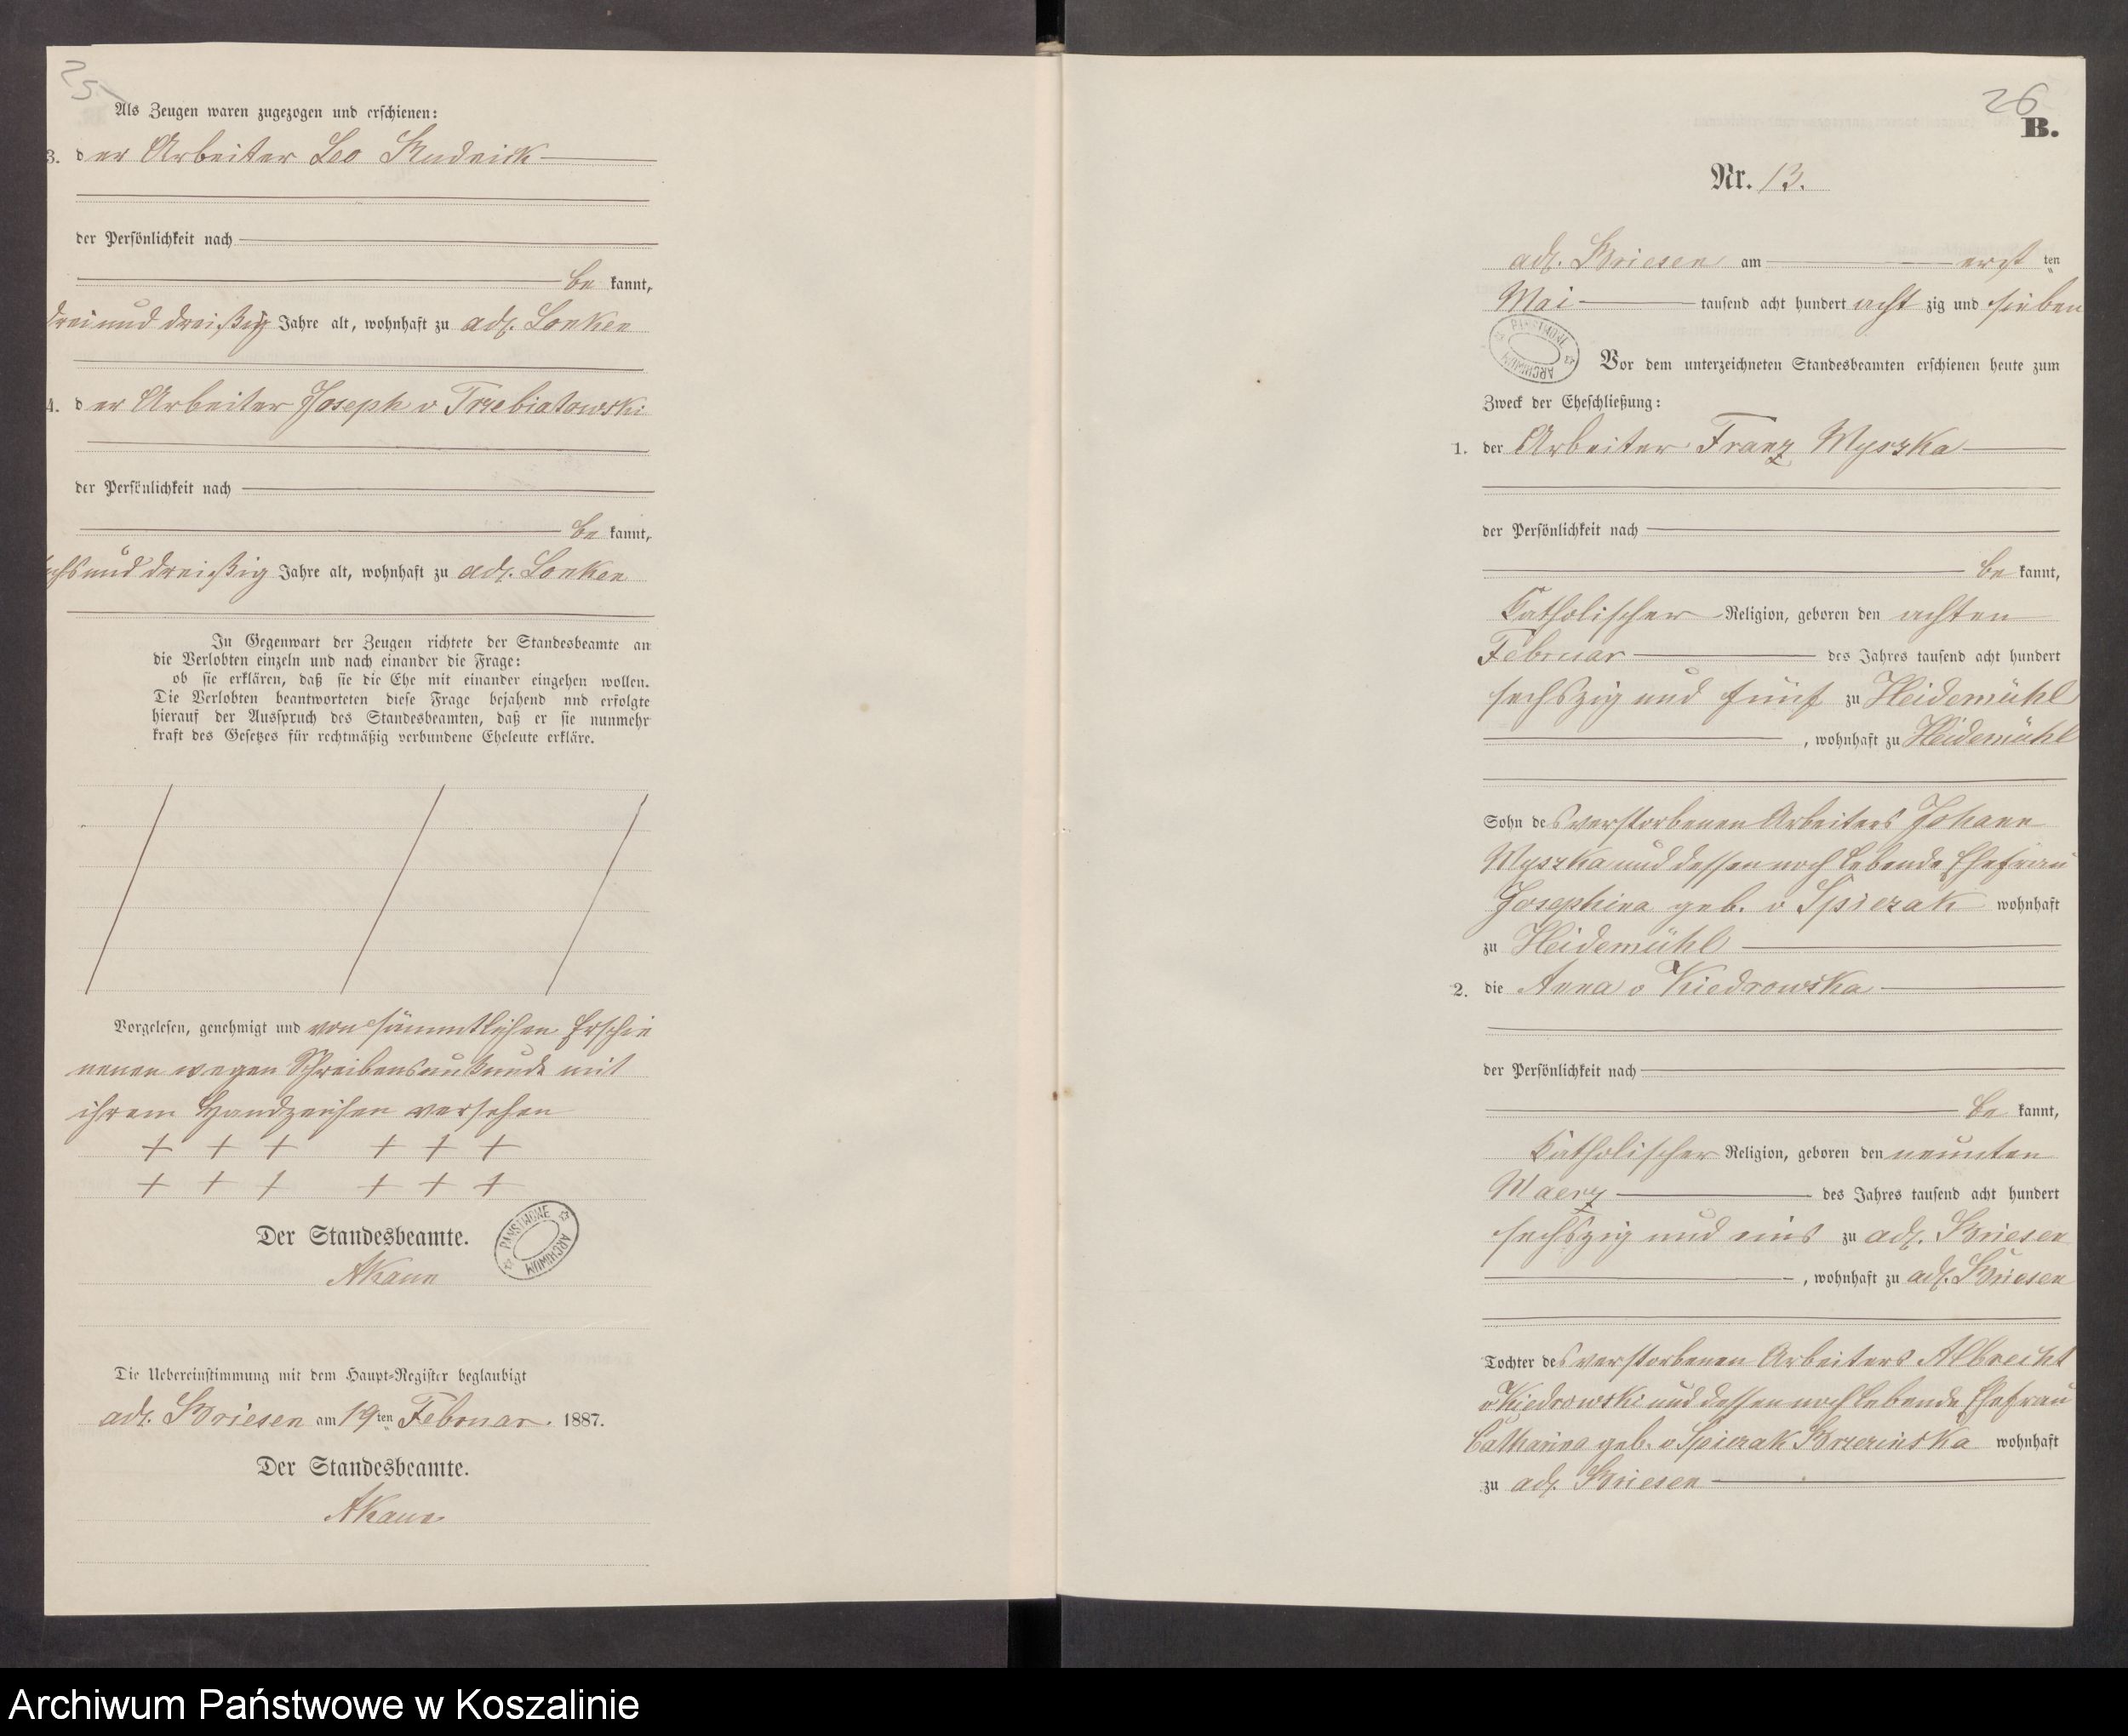 25
Als Zeugen waren zugezogen und erschienen:
3. der Arbeiter Leo Rudnick
der Persönlichkeit nach
be kannt,
drei und dreißig Jahre alt, wohnhaft zu adl. Lonken
4. der Arbeiter Joseph v Trzebiatowski
der Persönlichkeit nach
be kannt,
chs und dreißig Jahre alt, wohnhaft zu adl. Lonken
In Gegenwart der Zeugen richtete der Standesbeamte an
die Verlobten einzeln und nach einander die Frage:
ob sie erklären, daß sie die Ehe mit einander eingehen wollen.
Die Verlobten beantworteten diese Frage bejahend und erfolgte
hierauf der Ausspruch des Standesbeamten, daß er sie nunmehr
kraft des Gesetzes für rechtmäßig verbundene Eheleute erkläre.
Vorgelesen, genehmigt und von sämmtlichen Erschie
nenen wegen Schreibensunkunde mit
ihrem Handzeichen versehen
+ + + + + +
+ + + + + +
Der Standesbeamte.
PANSTWOWE ARCHIWUM
Die Uebereinstimmung mit dem Haupt-Register beglaubigt
adl. Briesen am 19ten Februar. 1887.
Der Standesbeamte.
26
B.
Nr. 13.
adl. Briesen am erst ten
Mai tausend acht hundert acht zig und sieben
PANSTWOWE ARCHIWUM
Vor dem unterzeichneten Standesbeamten erschienen heute zum
Zweck der Eheschließung:
1. der Arbeiter Franz Myszka
der Persönlichkeit nach
be kannt,
Katholischer Religion, geboren den achten
Februar des Jahres tausend acht hundert
sechszig und fünf zu Heidemühl
, wohnhaft zu Heidemühl
Sohn des verstorbenen Arbeiters Johann
Myszka und dessen noch lebende Ehefrau
Josephina geb. v Spiczak wohnhaft
zu Heidemühl
2. die Anna v Kiedrowska
der Persönlichkeit nach
be kannt,
Katholischer Religion, geboren den neunten
Maerz des Jahres tausend acht hundert
sechszig und eins zu adl. Briesen
, wohnhaft zu adl. Briesen
Tochter des verstorbenen Arbeiters Albrecht
v Kiedrowski und dessen noch lebende Ehefrau
Catharina geb. v Spiczak Brzezinska wohnhaft
zu adl. Briesen
Archiwum Państwowe w Koszalinie